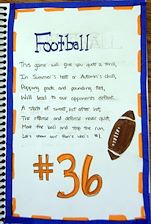 Football
This game will give you quite a thrill,
In Summer's heat or Autumn's chill,
Popping pads and pounding feet,
Will lead to our opponents defeat.
A state of sweat, but after all,
The offense and defense never quit,
Move the ball and stop the run,
Let's show our fans who's #1.
#36